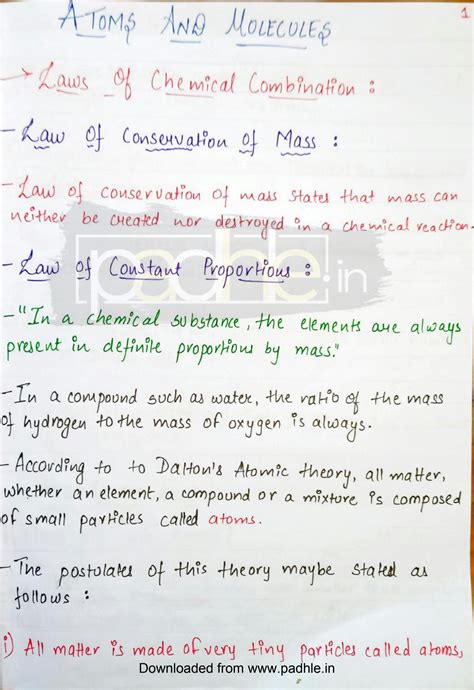 1
ATOMS AND MOLECULES
→ Laws Of Chemical Combination :
- Law Of Conservation Of Mass :
- Law of conservation of mass states that mass can
neither be created nor destroyed in a chemical reaction.
padhle.in
- Law of Constant Proportions :
- "In a chemical substance, the elements are always
present in definite proportions by mass."
- In a compound such as water, the ratio of the mass
of hydrogen to the mass of oxygen is always.
- According to to Dalton's Atomic theory, all matter,
whether an element, a compound or a mixture is composed
of small particles called atoms.
- The postulates of this theory maybe stated as
follows :
i) All matter is made of very tiny particles called atoms,
Downloaded from www.padhle.in